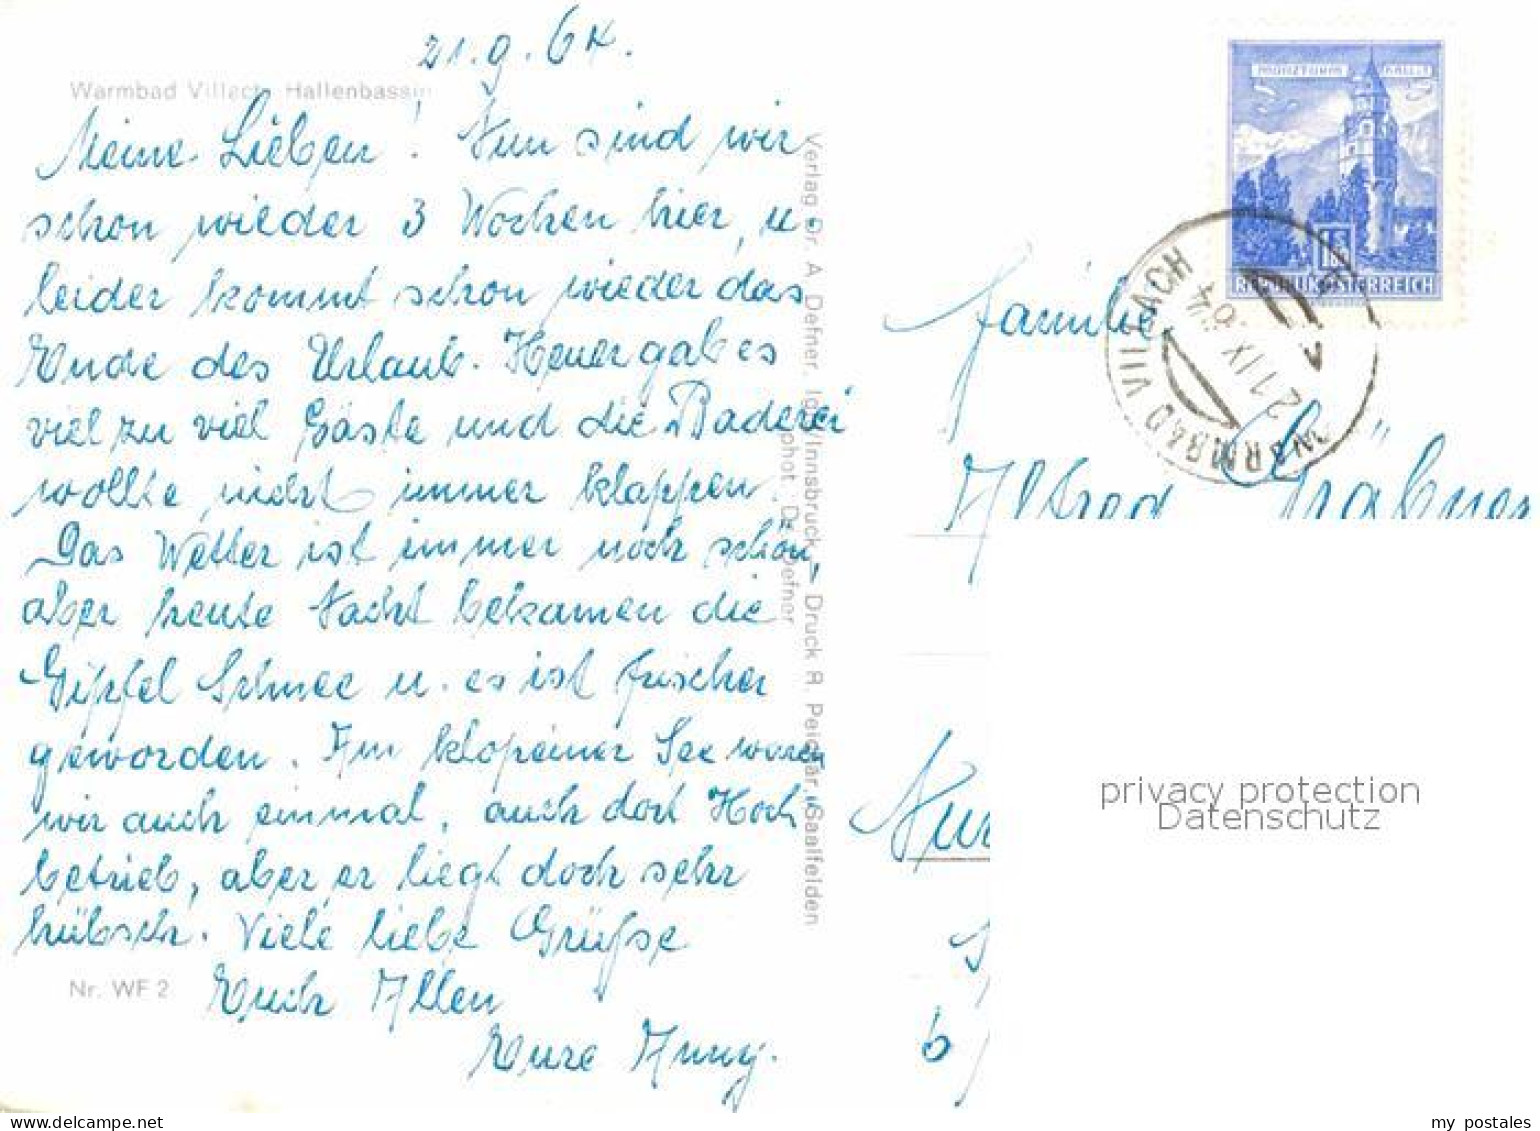 21.9.64.
Warmbad Villach Hallenbassin
Meine Lieben! Nun sind wir
schon wieder 3 Wochen hier, u.
leider kommt schon wieder das
Ende des Urlaub. Heuer gab es
viel zu viel Gäste und die Baderei
wollte nicht immer klappen.
Das Wetter ist immer noch schön,
aber heute Nacht bekamen die
Gipfel Schnee u. es ist frischer
geworden. Am Klopeiner See waren
wir auch einmal, auch dort Hoch
betrieb, aber er liegt doch sehr
hübsch. Viele liebe Grüße
Euch Allen
Eure Anny.
Nr. WF 2
Verlag Dr. A. Defner, Igls/Innsbruck — Druck R. Peichär, Saalfelden
phot. Dr. Defner
MÜNZTURM HALL
1
REPUBLIK ÖSTERREICH
WARMBAD VILLACH
21.IX.64
Familie
Alfred Gräbner
Nür
b
privacy protection
Datenschutz
my postales